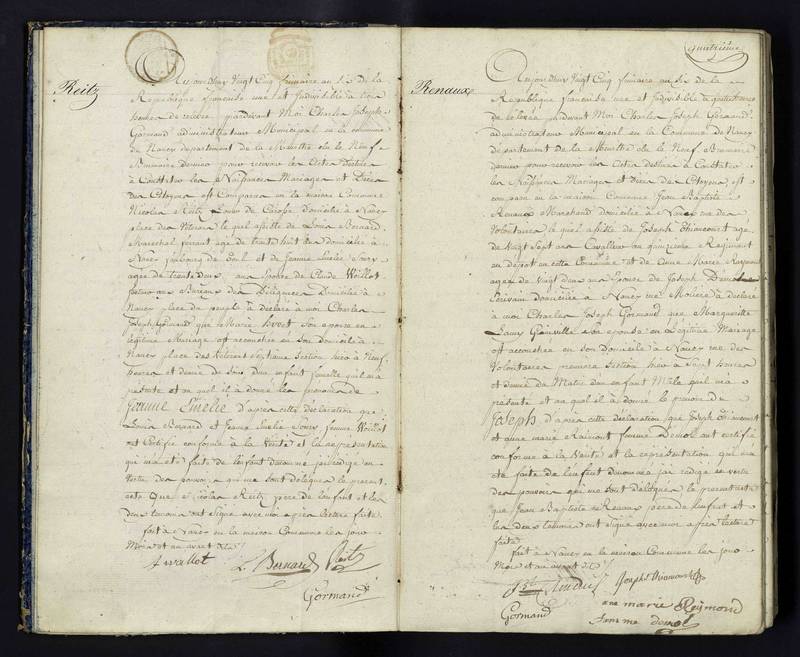 Reitz
Aujourdhuy Vingt Cinq frimaire an Six de la
Republique francoise une et Indivisible à
heures de relevée pardevant Moi Charles Joseph
Gormand administrateur Municipal en la commune
de Nancy département de la Meurthe élu le Neuf
Brumaire dernier pour recevoir les Actes destinés
à Constater les Naissances Mariages et Décès
des Citoyens est Comparu en la maison Commune
Nicolas Reitz Domicilié à Nancy
place des lequel assisté de Louis Bernard
Marechal ferrant agé de trente huit ans domicilié à
Nancy faubourg de et de Jeanne Emelie
agée de trente Deux ans Epouse de Claude Woillot
Bureau des Domicilié à
Nancy place du peuple à déclaré à moi Charles
Joseph Gormand que Marie son epouse en
légitime Mariage est accouchée en son Domicile à
Nancy place des Section hier à Neuf
heures et demie du Soir d'un enfant femelle quil m'a
présenté et au quel il à donné les prénoms de
Jeanne Emelie d'après cette déclaration que
Louis Bernard et Jeanne Emelie femme Woillot
ont Certifié conforme à la Verité et la représentation
qui m'a été faite de l'enfant dénommé jai rédigé en
Vertu des pouvoirs qui me sont délégués le présent
acte Que Nicolas Reitz père de l'enfant et les
deux temoins ont Signé avec moi après lecture faite
fait à Nancy en la maison Commune les jour
Mois et an avant dits
L. Bernard Reitz
Gormand
quatrieme
Renaux
Aujourdhuy Vingt Cinq frimaire an Six de la
Republique francoise une et Indivisible à quatre heures
de relevée pardevant Moi Charles Joseph Gormand
administrateur Municipal en la Commune de Nancy
département de la Meurthe élu le Neuf Brumaire
dernier pour recevoir les Actes destinés à Constater
les Naissances Mariages et Décès des Citoyens, est
comparu en la maison Commune Jean Baptiste
Renaux Marchand domicilié à Nancy rue des
Volontaires le quel assisté de Joseph Thiancourt agé
de Vingt Sept ans Cavallier au quinzieme Regiment
en dépot en cette Commune et de Anne Marie Raimont
agée de Vingt deux ans Epouse de Joseph
Ecrivain domiciliée à Nancy rue Moliere à déclaré
à moi Charles Joseph Gormand que Marguerite
son epouse en Légitime Mariage
est accouchée en son Domicile à Nancy rue des
Volontaires premiere Section hier à Sept heures
et demie du Matin d'un enfant Mâle quil m'a
présenté et au quel il à donné le prenom de
Joseph d'après cette déclaration que Joseph Thiancourt
et anne marie Raimont femme ont certifié
conforme à la Verité et la représentation qui m'a
été faite de l'enfant dénommé jai redigé en vertu
des pouvoirs qui me sont délégués le présent acte
que Jean Baptiste Renaux père de l'enfant et
les deux temoins ont signé avec moi après lecture
faite
fait à Nancy en la maison Commune les jour
Mois et an avant dits
Joseph Thiancourt
ane marie Reymond
Gormand femme